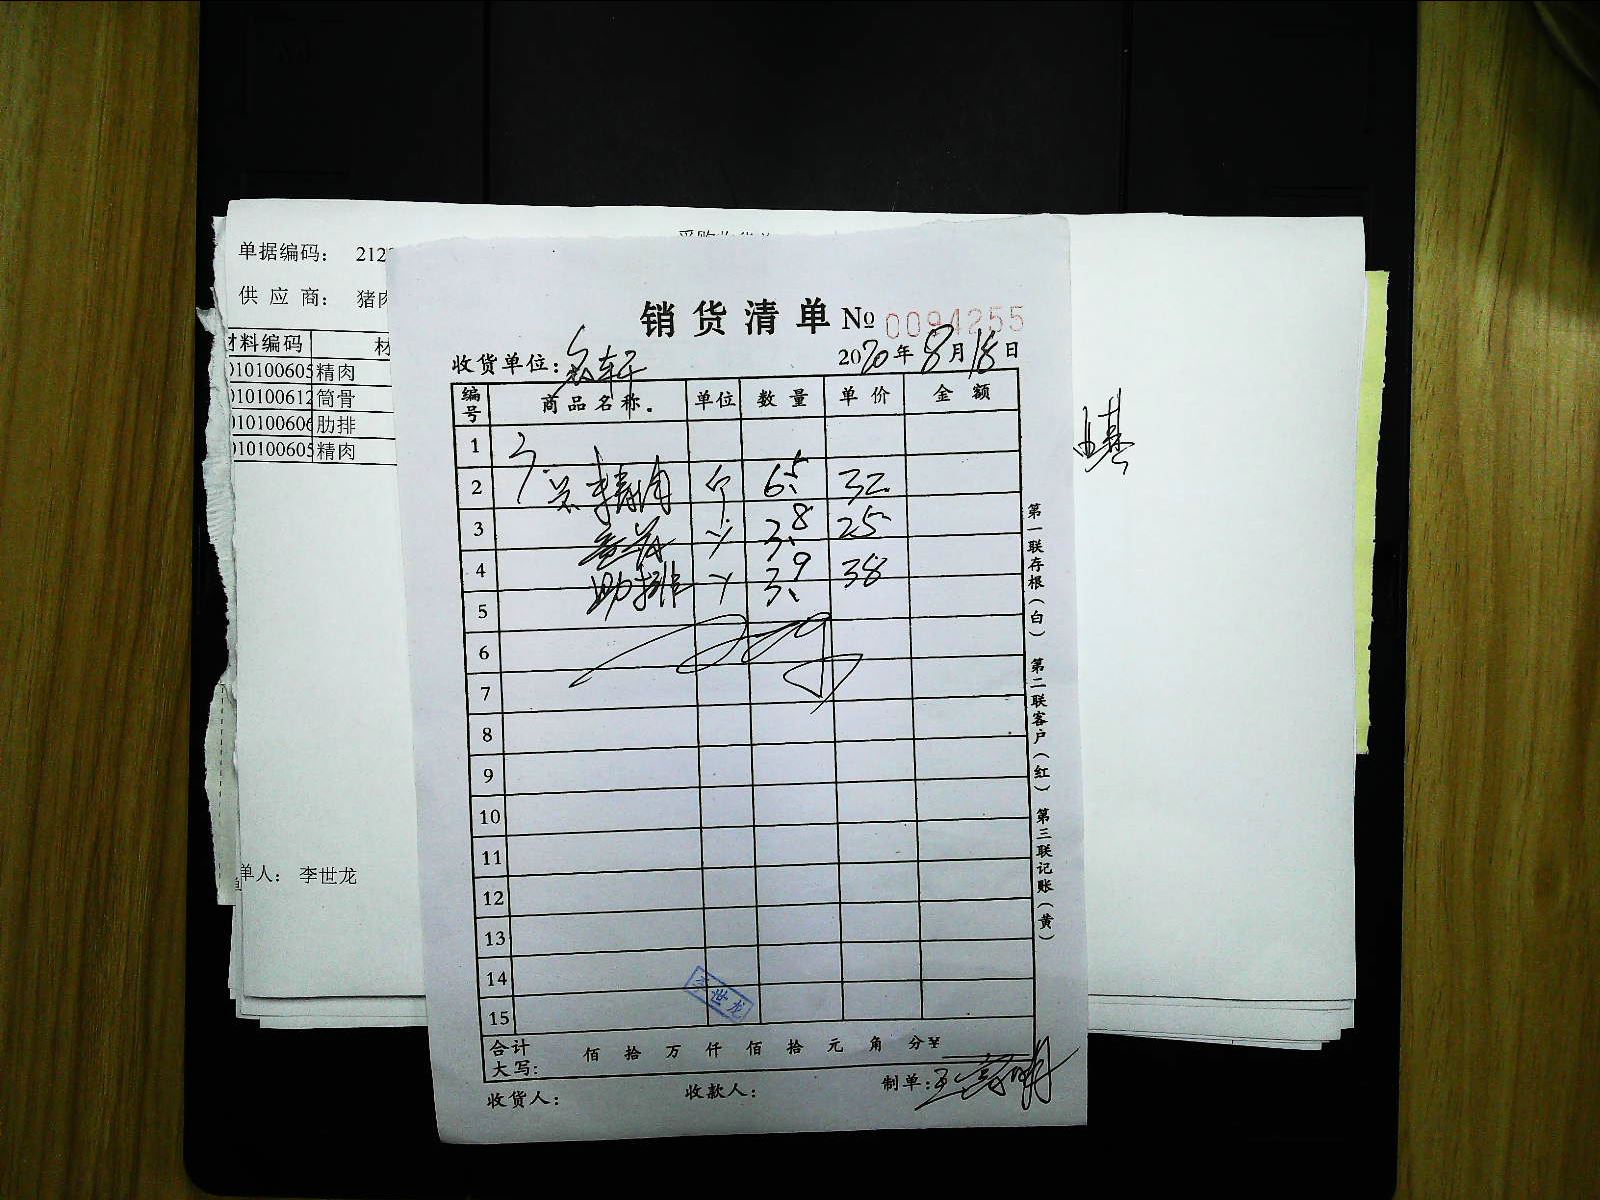 采购收货单
单据编码： 212
供 应 商： 猪肉
材料编码 材
010100605 精肉
010100612 筒骨
010100606 肋排
010100605 精肉
单人： 李世龙
销货清单 № 0094255
收货单位：
2020年8月18日
编号 商品名称. 单位 数量 单价 金额
1
2 精肉 斤 6.5 32
3 3.8 25
4 肋排 3.9 38
5
6
7
8
9
10
11
12
13
14
15
李世龙
合计大写： 佰 拾 万 仟 佰 拾 元 角 分 ¥
收货人： 收款人： 制单：
第一联存根（白） 第二联客户（红） 第三联记账（黄）